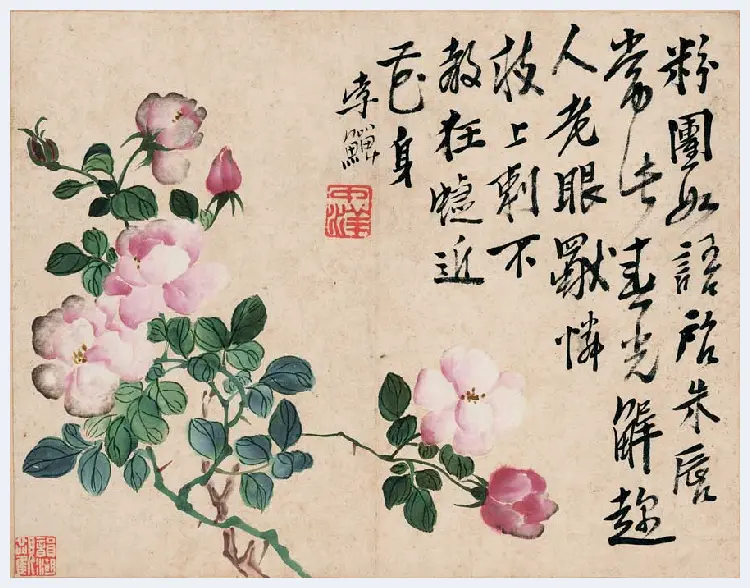 粉團如語啟朱唇
常春光解趨
人老眼獨憐
枝上刺不
教狂蝶近
花身
李鱓
中洋